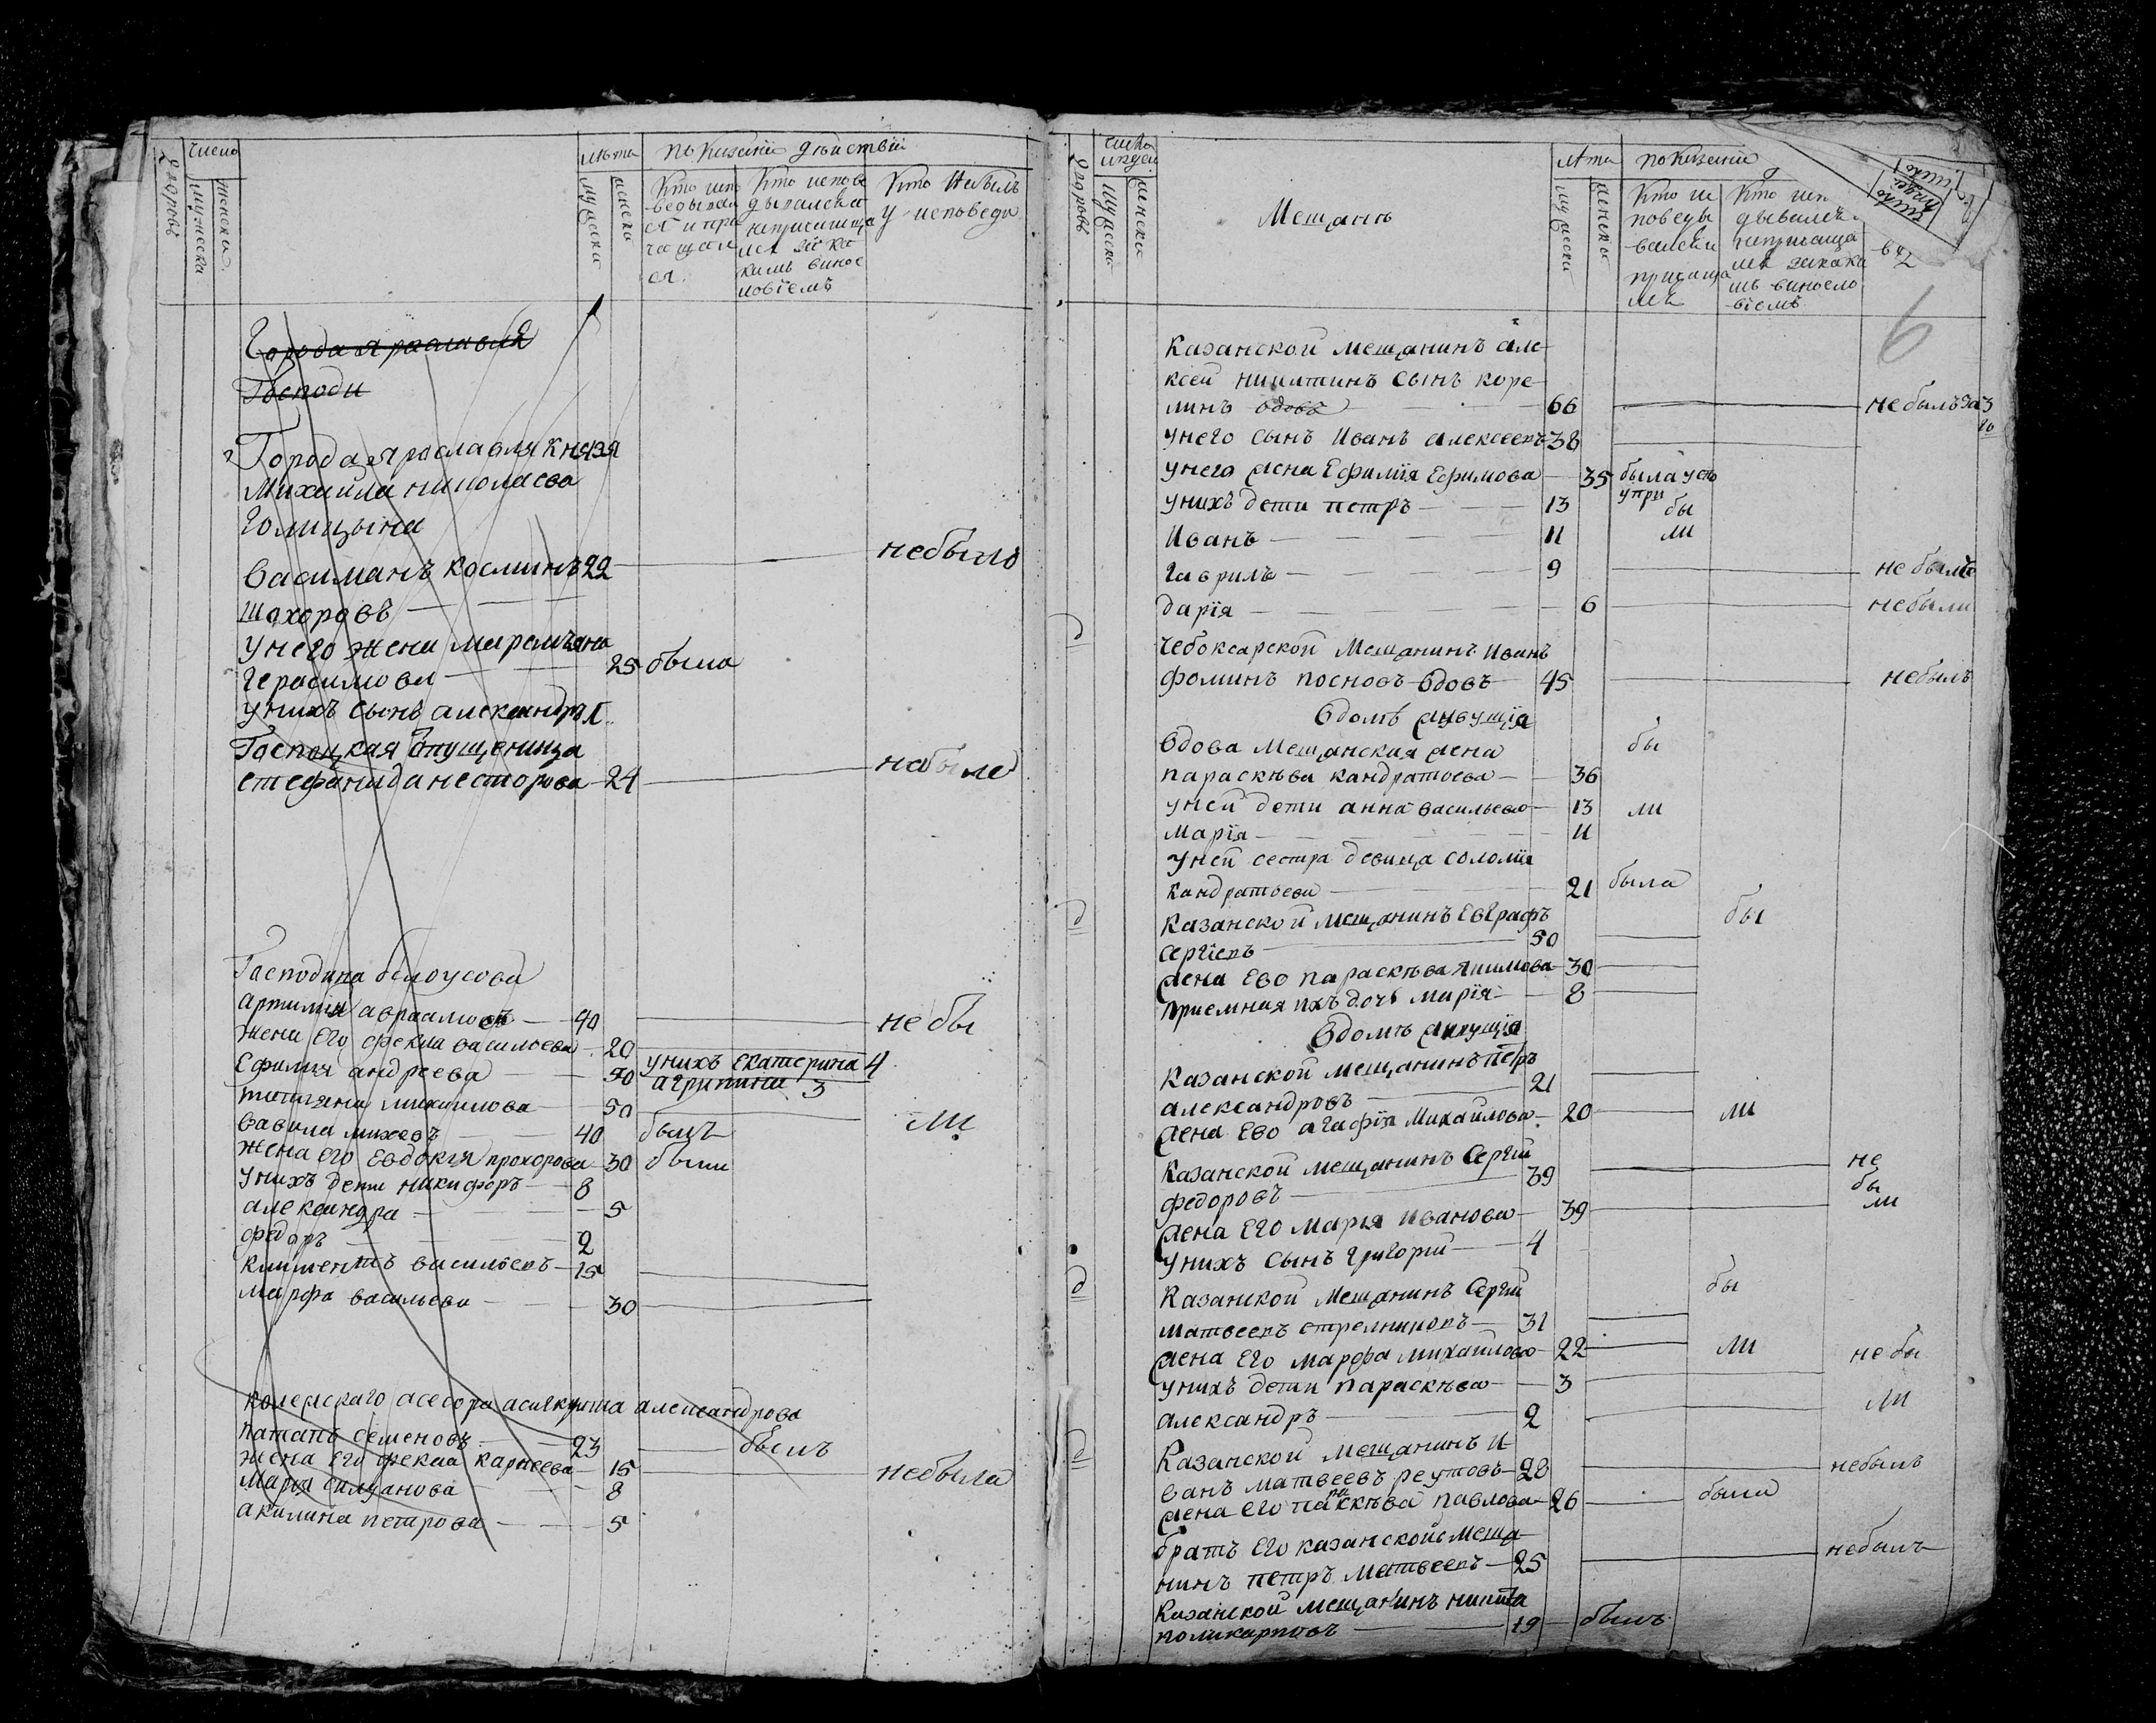 число
дворовъ
мужеска
женска
лѣта
мужеска
женска
показаніи дѣйствіи
Кто испо
ведывал
ся и при
чащал
ся.
Кто испове
дывался а
непричаща
лся за ка
кимъ винос
ловіемъ
Кто Небылъ
у исповеди
Города Ярославля
Господи
Города Ярославля Князя
Михаила николаева
Голицына
Василианъ Косминъ 22 небыло
шахоровъ
Унего жена маремъяна
Герасимова 25 была
Унихъ сынъ александръ 1.
Госпоцкая отпущеница
стефанида несторова 24 небыла
Господина белоусова
Артимій авраамовъ 40 не бы
жена Его фекла васильева 20
Ефимия андреева 50 унихъ Екатерина 4
агрипина 3
татияна михаилова 50
Вавила михеевъ 40 былъ ли
жена Его Евдокия прохорова 30 были
Унихъ дети никифоръ 8
александра 5
федоръ 2
климентъ васильевъ 15
марфа васильева 30
колежскаго асесора александрова
патапъ семеновъ 23 былъ
жена Его фекла Карнеева 15 небыла
Мария силуанова 8
акилина петрова 5
дворовъ
число
людей
мужеска
женска
Мещанъ
лѣта
мужеска
женска
показаніи
Кто ис
поведы
вался и
причаща
лся
Кто исп
дывался
непричаща
лся закаки
мъ виносло
віемъ
6
Казанской мещанинъ але
ксей никитинъ сынъ коре
линъ вдовъ 66 не былъ за 3
унего сынъ Иванъ алексеевъ 38
унего жена Ефимія Ефимова 35 была у
унихъ дети петръ 13 бы
Иванъ 11 ли
гаврилъ 9 не былъ
дарія 6 небыли
Чебоксарской Мещанинъ Иванъ
фоминъ посновъ вдовъ 45 небылъ
Вдомѣ живущія
Вдова Мещанская жена бы
параскѣва кандратьева 36
уней дети анна васильева 13 ли
марія 11
Уней сестра девица соломія
кандратьева 21 была
Казанской мещанинъ Евграфъ бы
сергіевъ 50
жена Ево параскѣва якимова 30
приемная ихъ дочь марія 8
Вдомѣ живущія
Казанской мещанинъ петръ
александровъ 21
жена Ево агафія михаилова 20 ли
Казанской мещанинъ Сергій не
федоровъ 39 бы
жена Его мария иванова 39 ли
унихъ сынъ григорій 4
Казанской мещанинъ Сергій бы
матвеевъ стрелниковъ 31
жена Его марфа михаилова 22 ли не бы
унихъ дети параскѣва 3
александръ 2 ли
Казанской мещанинъ И
ванъ матвеевъ реутовъ 28 небылъ
жена его параскѣва павлова 26 была
братъ Его казанской меща
нинъ петръ матвеевъ 25 небылъ
Казанской мещанинъ никита
поликарповъ 19 былъ